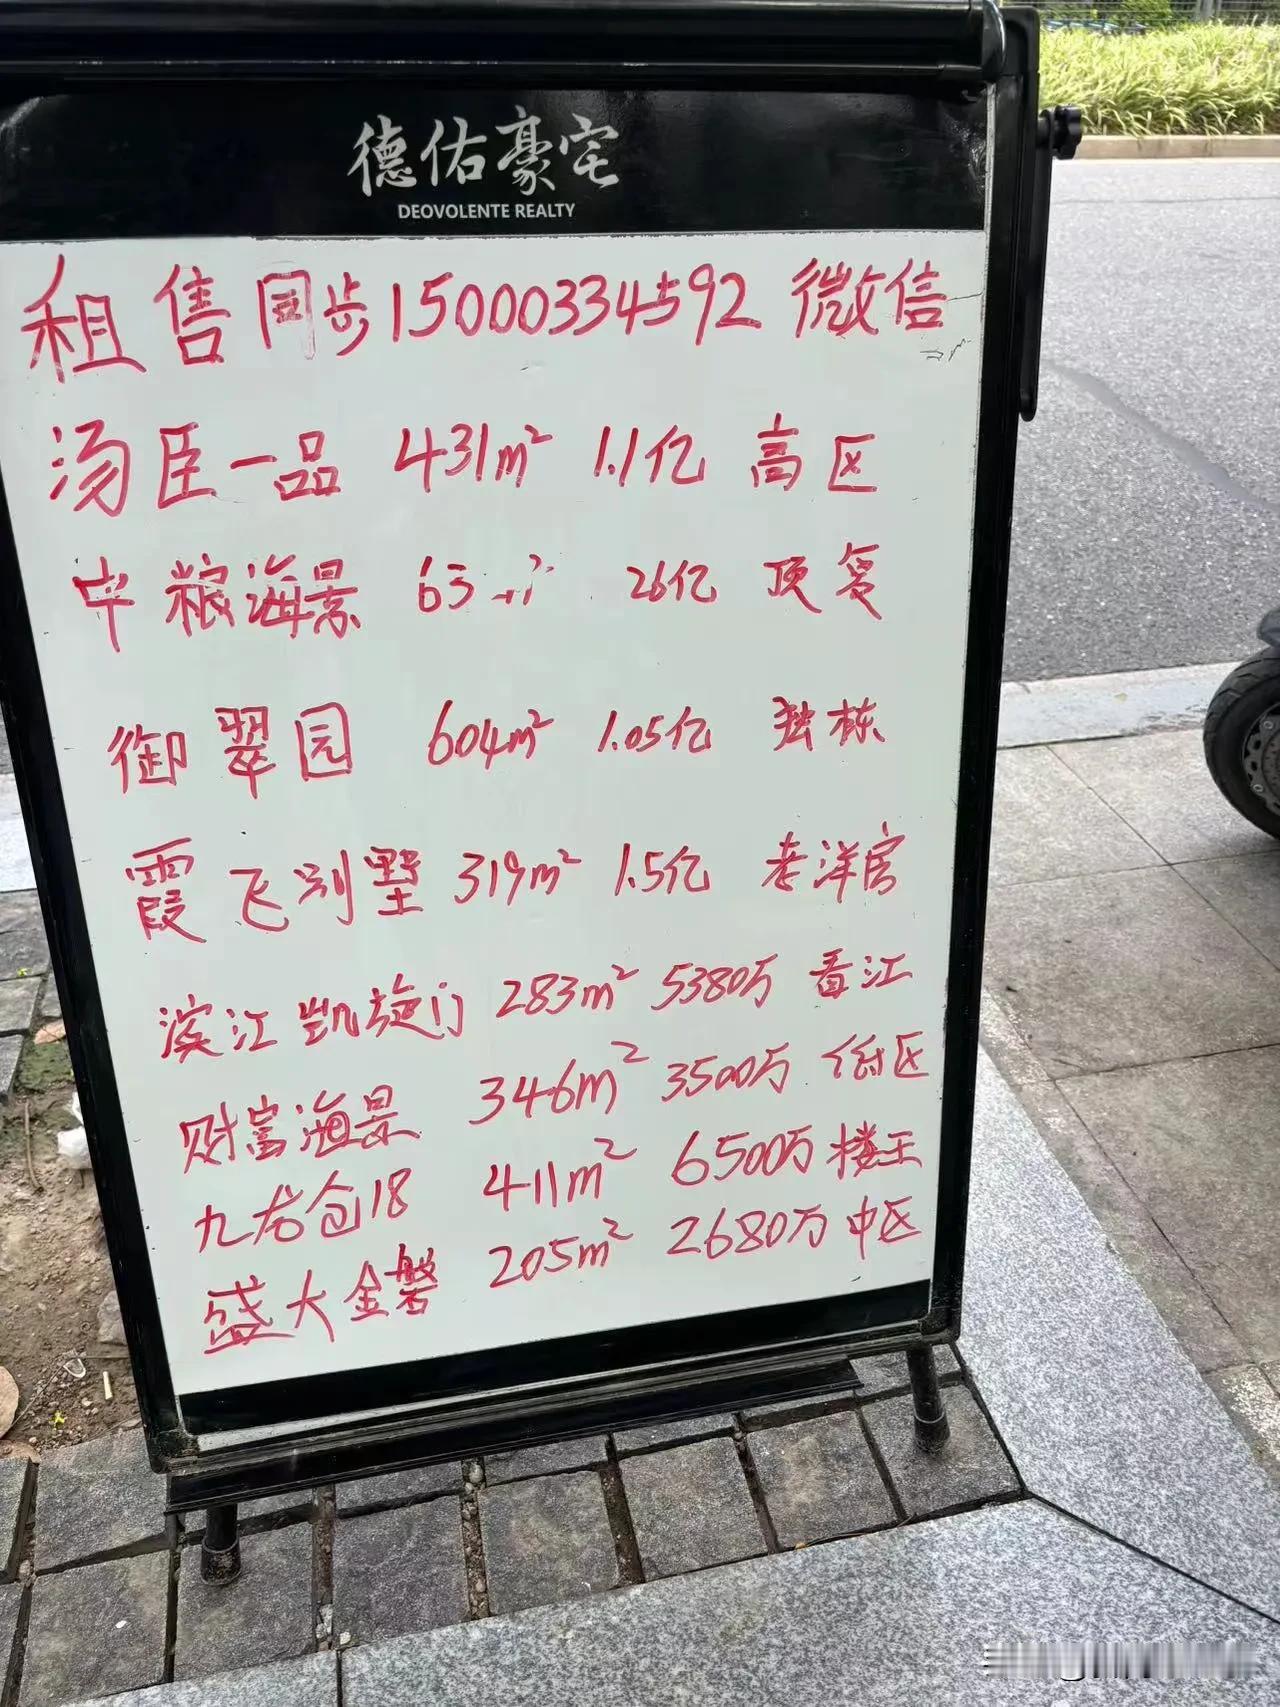 德佑豪宅
DEOVOLENTE REALTY
租售同步15000334592 微信
汤臣一品 431m² 1.1亿 高区
中粮海景 26亿 顶复
御翠园 604m² 1.05亿 独栋
霞飞别墅 319m² 1.5亿 老洋房
滨江凯旋门 283m² 5380万 看江
财富海景 346m² 3500万 低区
九龙仓18 411m² 6500万 楼王
盛大金磐 205m² 2680万 中区